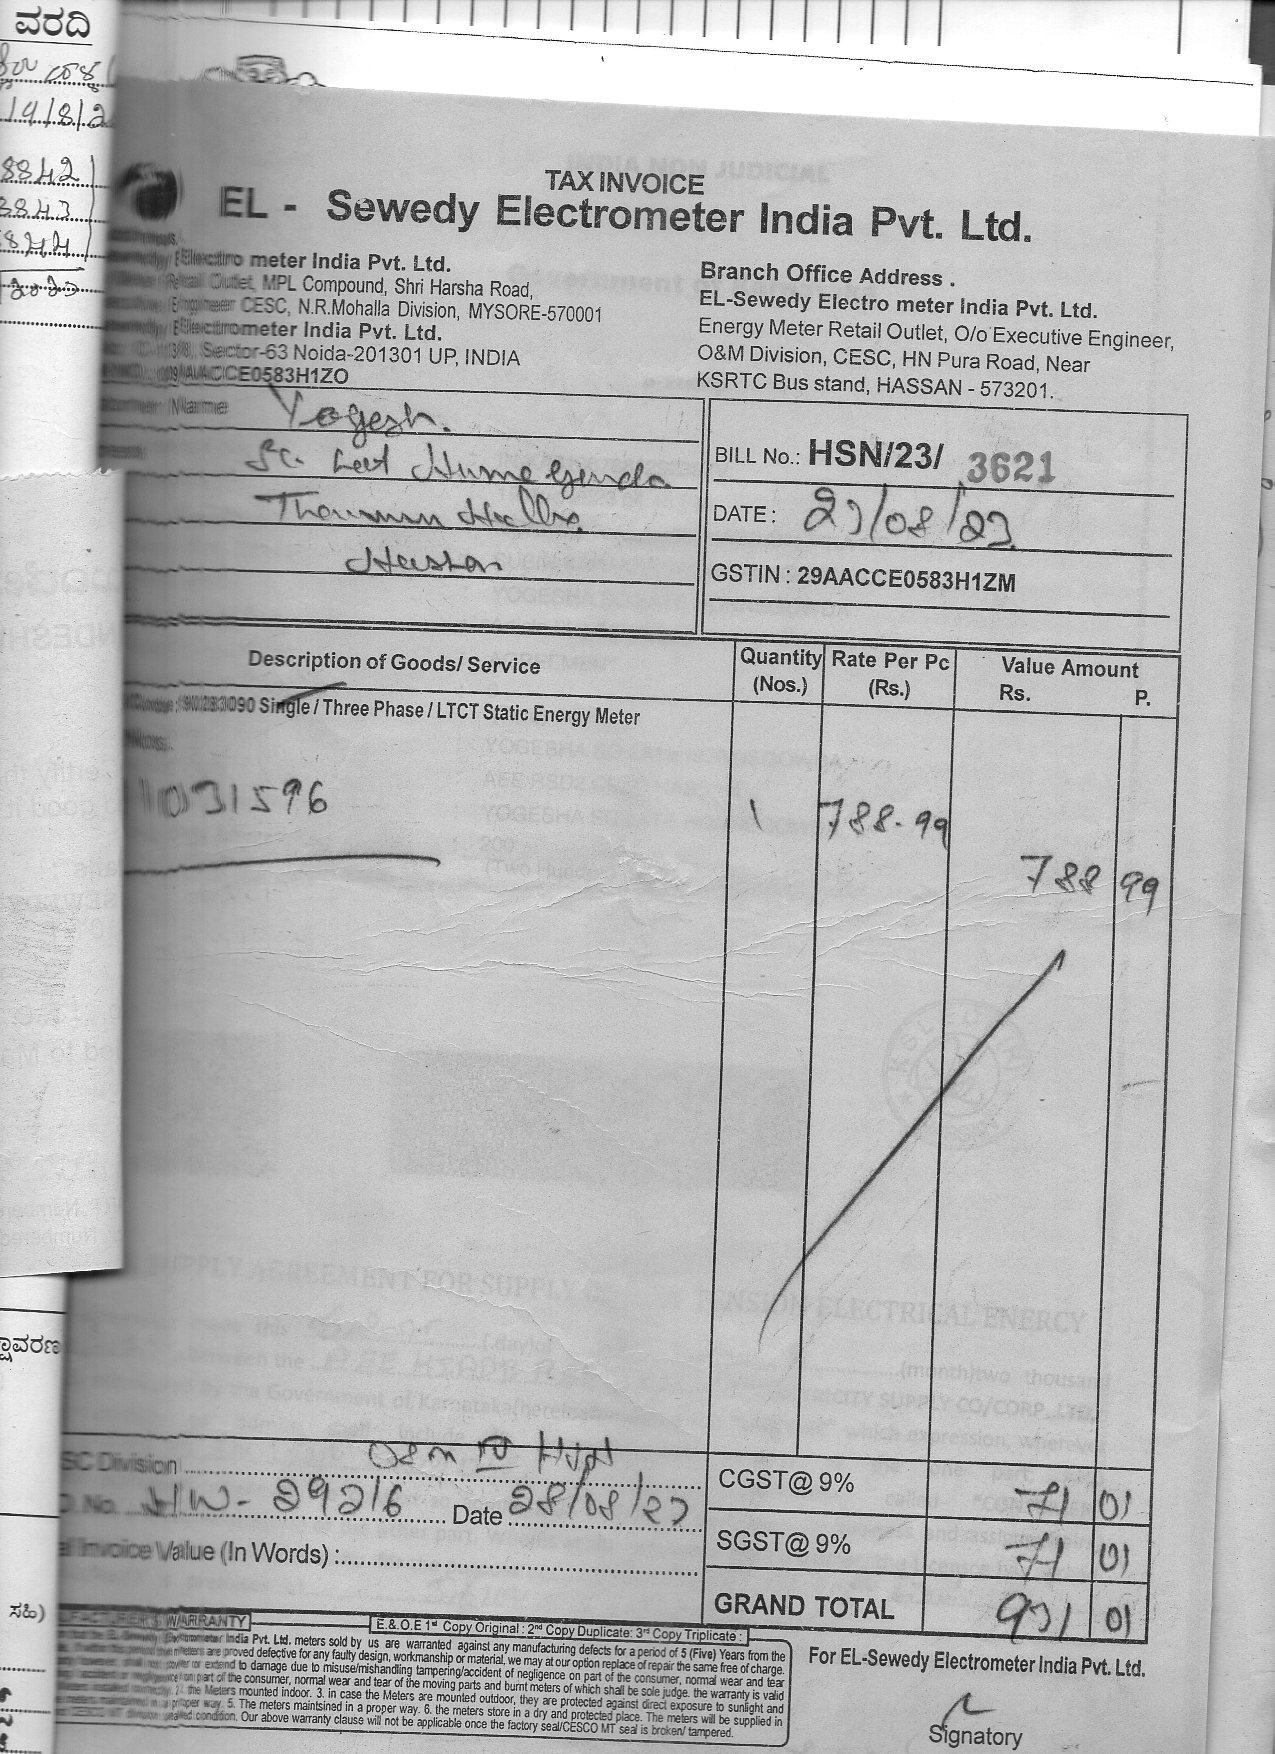 ವರದಿ
19/8/2
8842
3843
8844
TAX INVOICE
EL - Sewedy Electrometer India Pvt. Ltd.
Electro meter India Pvt. Ltd.
Retail Outlet, MPL Compound, Shri Harsha Road,
Engineer CESC, N.R.Mohalla Division, MYSORE-570001
Electrometer India Pvt. Ltd.
Sector-63 Noida-201301 UP, INDIA
09AACCE0583H1ZO
Branch Office Address .
EL-Sewedy Electro meter India Pvt. Ltd.
Energy Meter Retail Outlet, O/o Executive Engineer,
O&M Division, CESC, HN Pura Road, Near
KSRTC Bus stand, HASSAN - 573201.
Name Yogesh.
So. Late Hume Gowda
Hassan
BILL No.: HSN/23/ 3621
DATE : 23/08/23
GSTIN : 29AACCE0583H1ZM
Description of Goods/ Service Quantity (Nos.) Rate Per Pc (Rs.) Value Amount Rs. P.
90283090 Single / Three Phase / LTCT Static Energy Meter
Nos.
11031596 1 788.99
788 99
SC Division O&M IV Hspt
No. HW- 29216 Date 28/08/23
Invoice Value (In Words) :
CGST@ 9% 71 01
SGST@ 9% 71 01
GRAND TOTAL 931 01
E.& O.E 1st Copy Original : 2nd Copy Duplicate: 3rd Copy Triplicate :
MANUFACTURER'S WARRANTY
Electrometer India Pvt. Ltd. meters sold by us are warranted against any manufacturing defects for a period of 5 (Five) Years from the
meters are proved defective for any faulty design, workmanship or material, we may at our option replace of repair the same free of charge.
cover or extend to damage due to misuse/mishandling tampering/accident of negligence on part of the consumer, normal wear and tear
on part of the consumer, normal wear and tear of the moving parts and burnt meters of which shall be sole judge. the warranty is valid
2. the Meters mounted indoor. 3. in case the Meters are mounted outdoor, they are protected against direct exposure to sunlight and
in a proper way. 5. The meters maintsined in a proper way. 6. the meters store in a dry and protected place. The meters will be supplied in
sealed condition. Our above warranty clause will not be applicable once the factory seal/CESCO MT seal is broken/ tampered.
For EL-Sewedy Electrometer India Pvt. Ltd.
Signatory
ಸಹಿ)